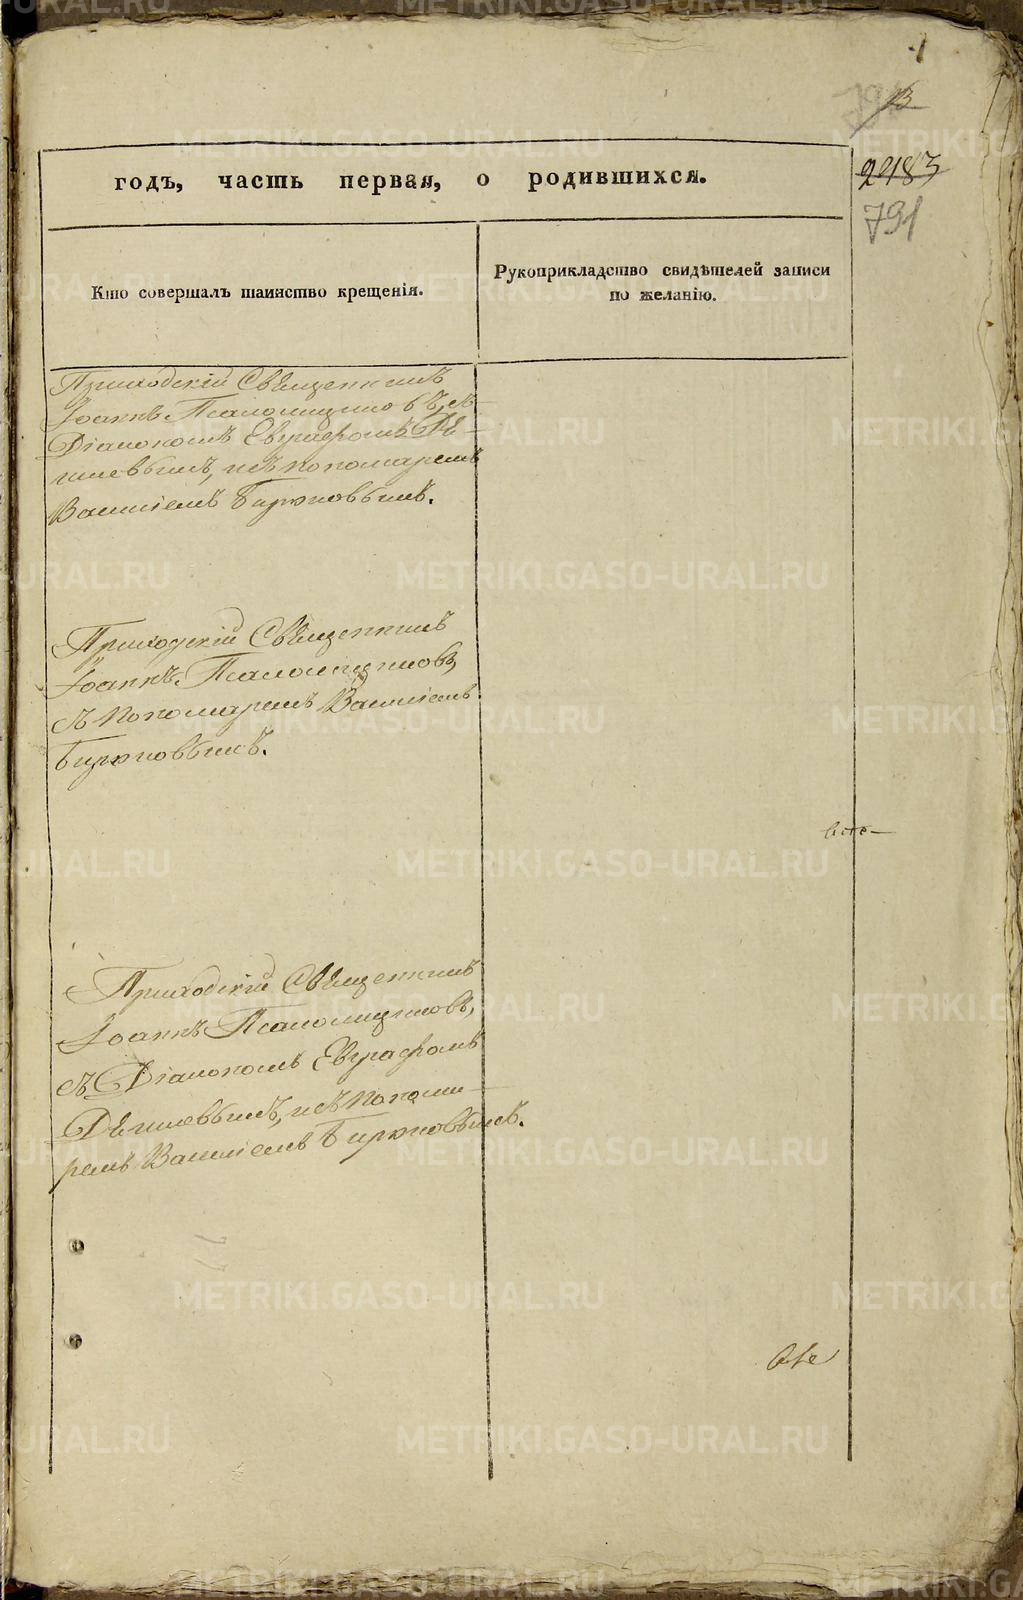 1
13
2483
791
годъ, часть первая, о родившихся.
Кто совершалъ таинство крещенія.
Рукоприкладство свидѣтелей записи
по желанію.
Приходскій Священникъ
Іоаннъ Псаломщиковъ, съ
Діакономъ Евграфомъ Дѣ-
шевымъ, и съ пономаремъ
Василіемъ Бирюковымъ.
Приходскій Священникъ
Іоаннъ Псаломщиковъ,
съ пономаремъ Василіемъ
Бирюковымъ.
Приходскій Священникъ
Іоаннъ Псаломщиковъ,
съ Діакономъ Евграфомъ
Дѣшевымъ, и съ понома-
ремъ Василіемъ Бирюковымъ.
METRIKI.GASO-URAL.RU